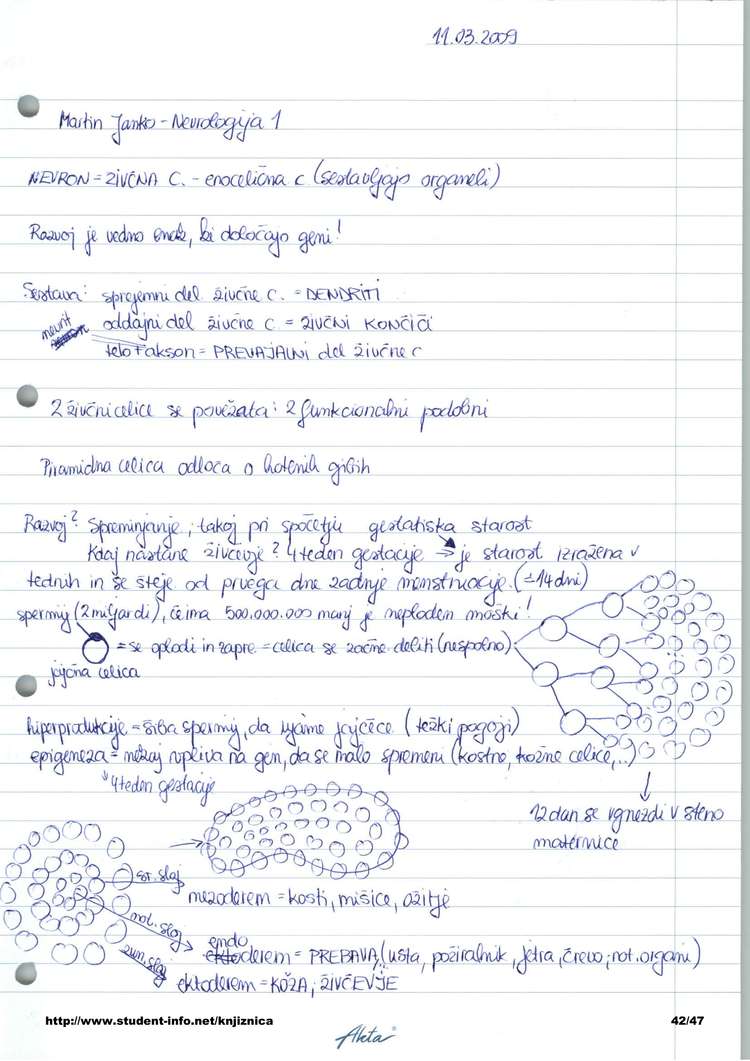 11.03.2009
Martin Janko - Nevrologija 1
NEVRON = ŽIVČNA C. - enocelična c (sestavljajo organeli)
Razvoj je vedno enak, ki določajo geni!
Sestava: sprejemni del živčne c. = DENDRITI
nevrit oddajni del živčne c = ŽIVČNI KONČIČI
telo + akson = PREVAJALNI del živčne c
2 živčni celice se povežata: 2 funkcionalni podobni
Piramidna celica odloča o hotenih gibih
Razvoj? Spreminjanje, takoj pri spočetju gestatiska starost
Kdaj nastane živčevje? 4 teden gestacije → je starost izražena v
tednih in se šteje od prvega dne zadnje menstruacije. (±14 dni)
spermij (2 miljardi), če ima 500.000.000 manj je neploden moški!
= se oplodi in zapre. = celica se začne deliti (nespolno):
jajčna celica
hiperprodukcije = šiba spermij, da najame jajčece (težki pogoji)
epigeneza = mežaj vpliva na gen, da se malo spremeni (kostne, kožne celice,..)
4 teden gestacije
12 dan se vgnezdi v steno
maternice
sr. sloj
mezoderem = kosti, mišice, ožilje
not. sloj
endo
ektoderem = PREBAVA (usta, požiralnik, jetra, črevo, not. organi)
zun. sloj
ektoderem = KOŽA, ŽIVČEVJE
http://www.student-info.net/knjiznica
42/47
Akta